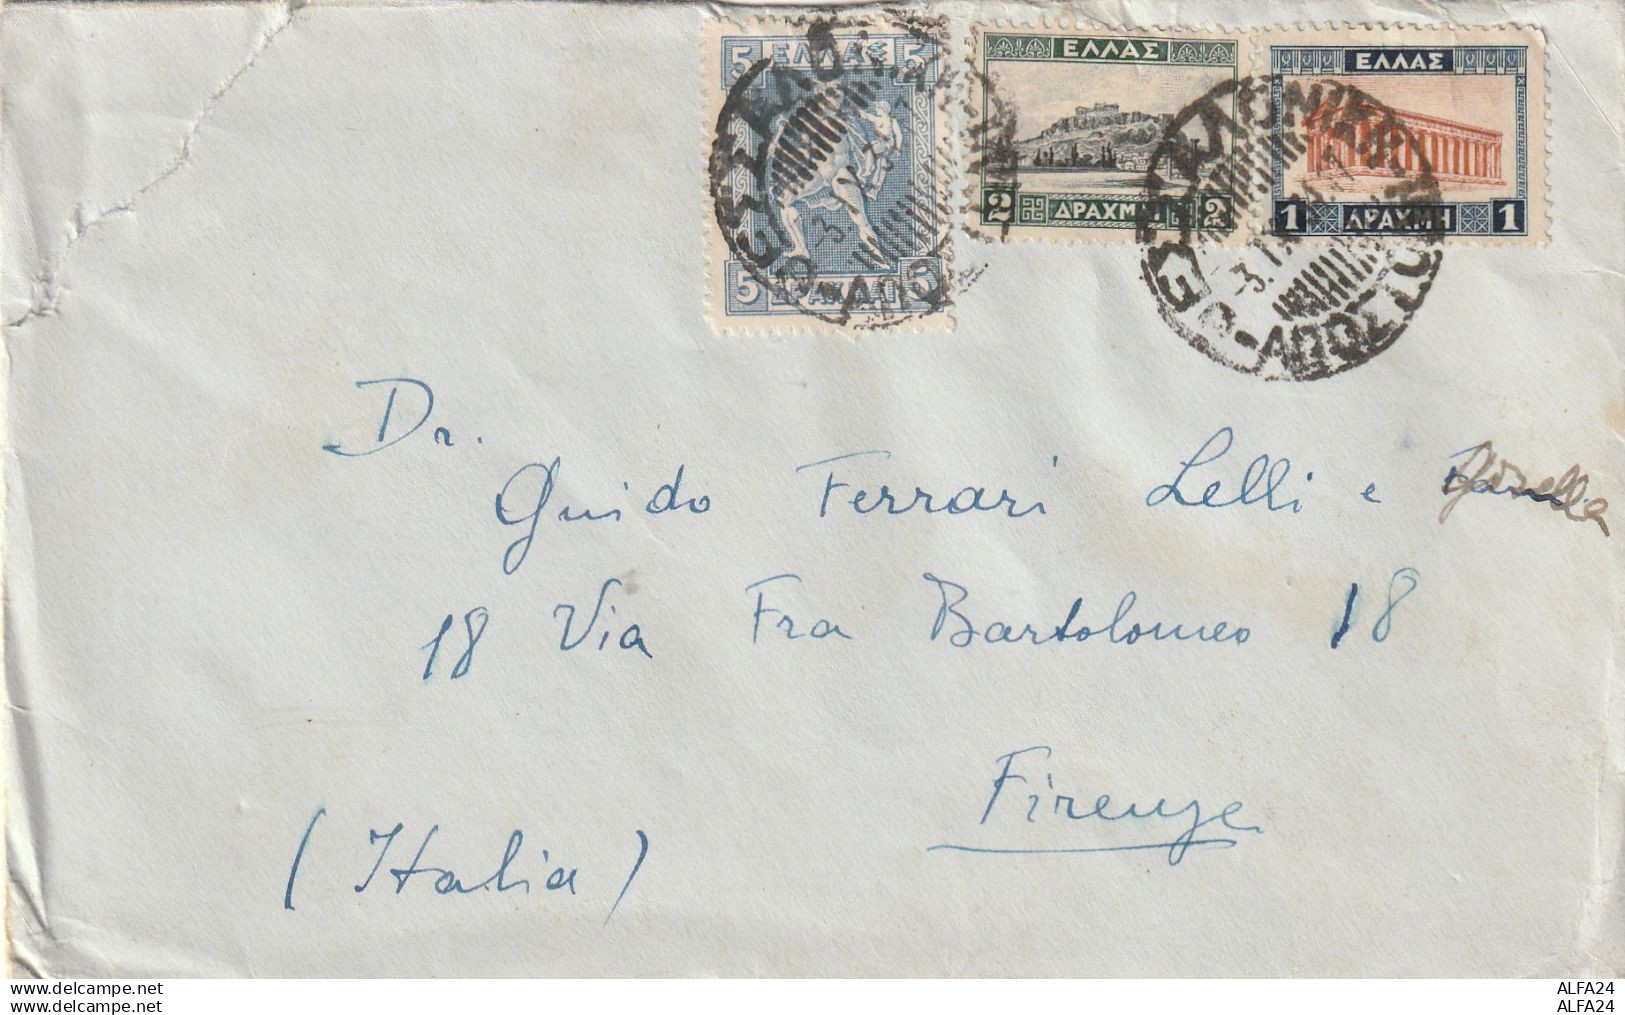 5 ΕΛΛΑΣ 5
5 ΔΡΑΧΜΑΙ 5
ΕΛΛΑΣ
2 ΔΡΑΧΜΑΙ 2
ΕΛΛΑΣ
1 ΔΡΑΧΜΗ 1
ΘΕΣΣΑΛΟΝΙΚΗ
Dr.
Guido Ferrari Lelli e
18 Via Fra Bartolomeo 18
Firenze
(Italia)
delcampe.net
delcampe.net
ALFA24
ALFA24